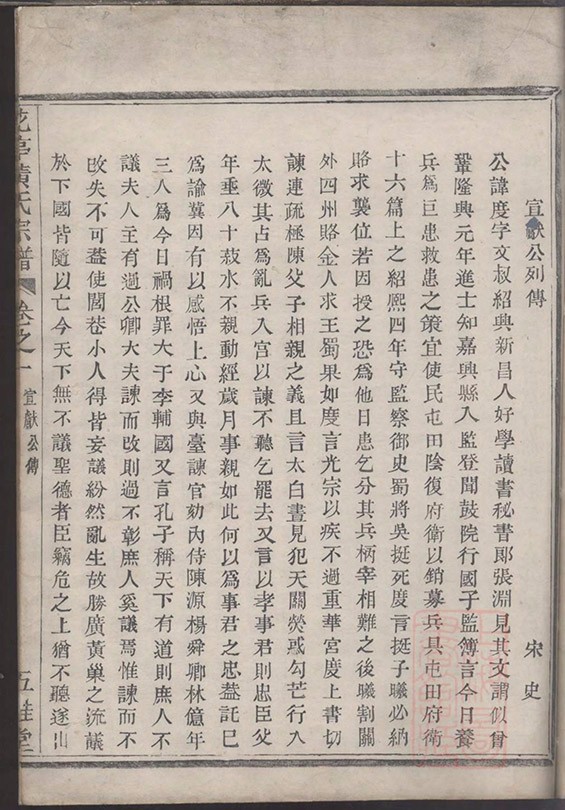 宣獻公列傳
宋史
公諱度字文叔紹興新昌人好學讀書秘書郎張淵見其文謂似曾
鞏隆興元年進士知嘉興縣入監登聞鼓院行國子監簿言今日養
兵爲巨患救患之策宜使民屯田陰復府衛以銷募兵具屯田府衛
十六篇上之紹熙四年守監察御史蜀將吳挺死度言挺子曦必納
賂求襲位若因授之恐爲他日患乞分其兵柄宰相難之後曦割關
外四州賂金人求王蜀果如度言光宗以疾不過重華宮度上書切
諫連疏極陳父子相親之義且言太白晝見犯天關熒惑勾芒行入
太微其占爲亂兵入宮以諫不聽乞罷去又言以孝事君則忠臣父
年垂八十菽水不親動經歲月事親如此何以爲事君之忠葢託已
爲諭冀因有以感悟上心又與臺諫官劾內侍陳源楊舜卿林億年
三人爲今日禍根罪大于李輔國又言孔子稱天下有道則庶人不
議夫人主有過公卿大夫諫而改則過不彰庶人奚議焉惟諫而不
改失不可葢使閭巷小人得皆妄議紛然亂生故勝廣黃巢之流議
於下國皆隨以亡今天下無不議聖德者臣竊危之上猶不聽遂出
黃氏宗譜
卷之一
宣獻公傳
五桂堂